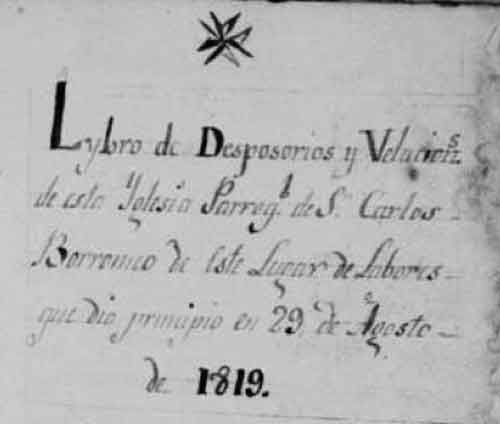 Lybro de Desposorios y Velacions.
de esta Yglesia Parroql. de Sn. Carlos
Borromeo de este Lugar de Labores
que dio principio en 29, de Agosto
de 1819.